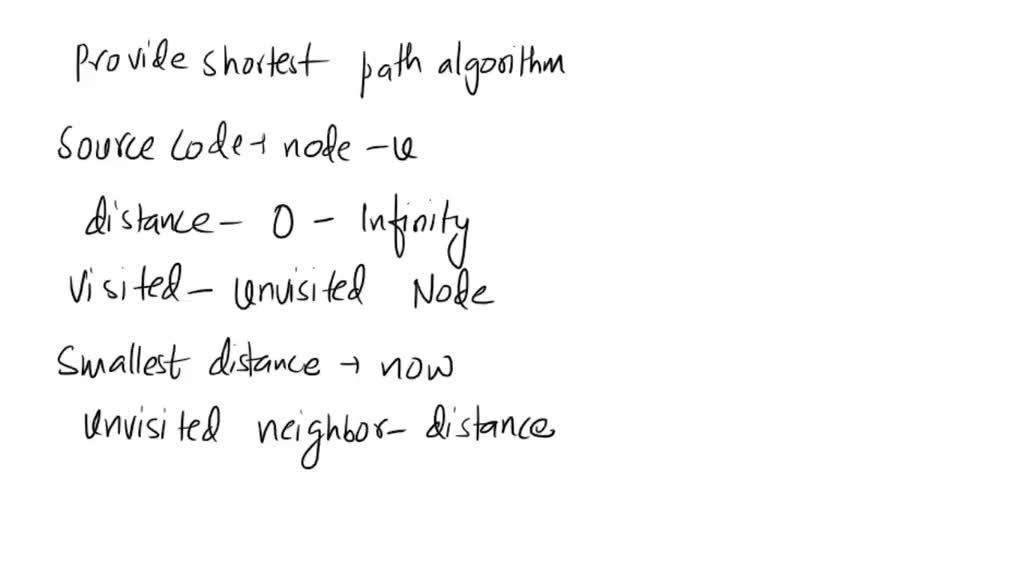 Provide shortest path algorithm
Source Code → node - u
distance - 0 - Infinity
Visited - Unvisited Node
Smallest distance → now
Unvisited neighbor - distance